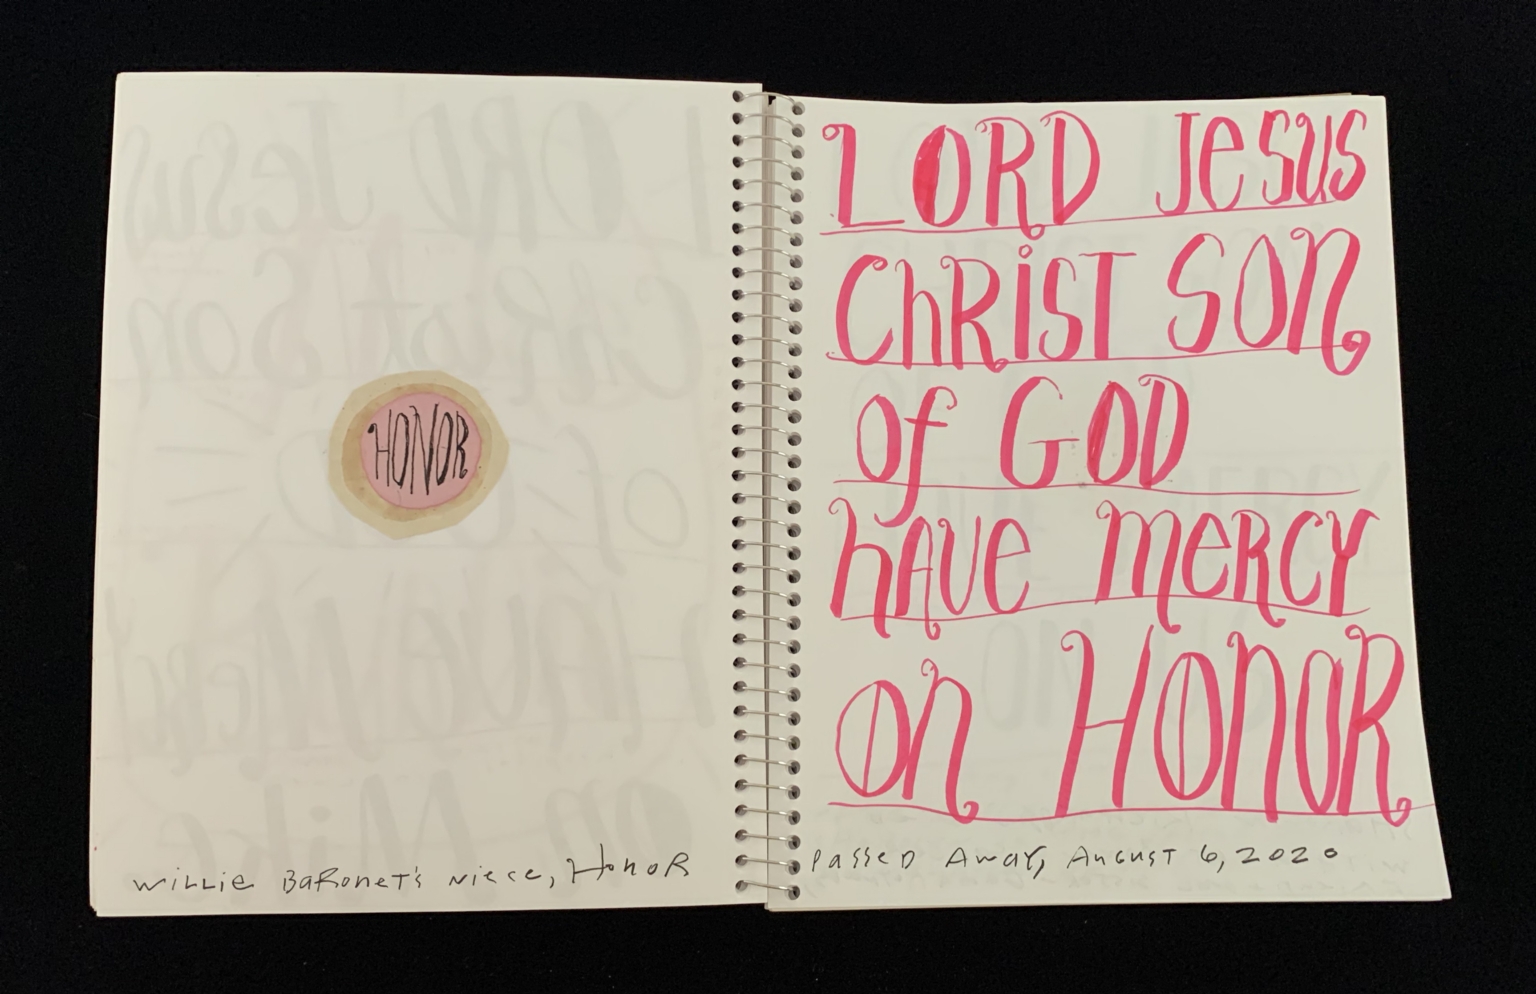 HONOR
WILLIE BARONET'S NIECE, HONOR
LORD JeSuS
ChRiST SON
of GOD
hAVe MeRCY
on HONOR
PASSED AWAY, AUGUST 6, 2020